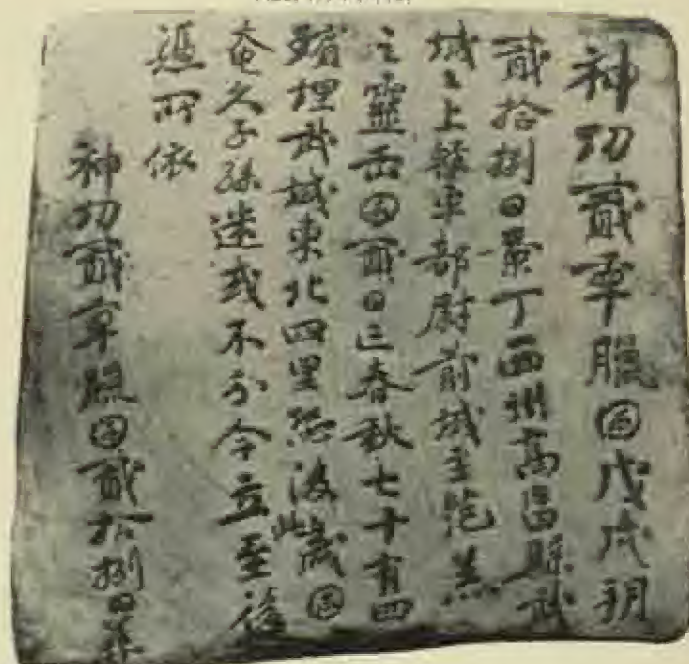 神功貳年臘月戊戌朔
貳拾捌日景丁西州高昌縣武
城々上輕車都尉前城主范羔
之靈正月貳日亡春秋七十有四
殯埋武城東北四里恐後歲月
奄久子孫迷或不分今立至後
憑所依
神功貳年臘月貳拾捌日葬